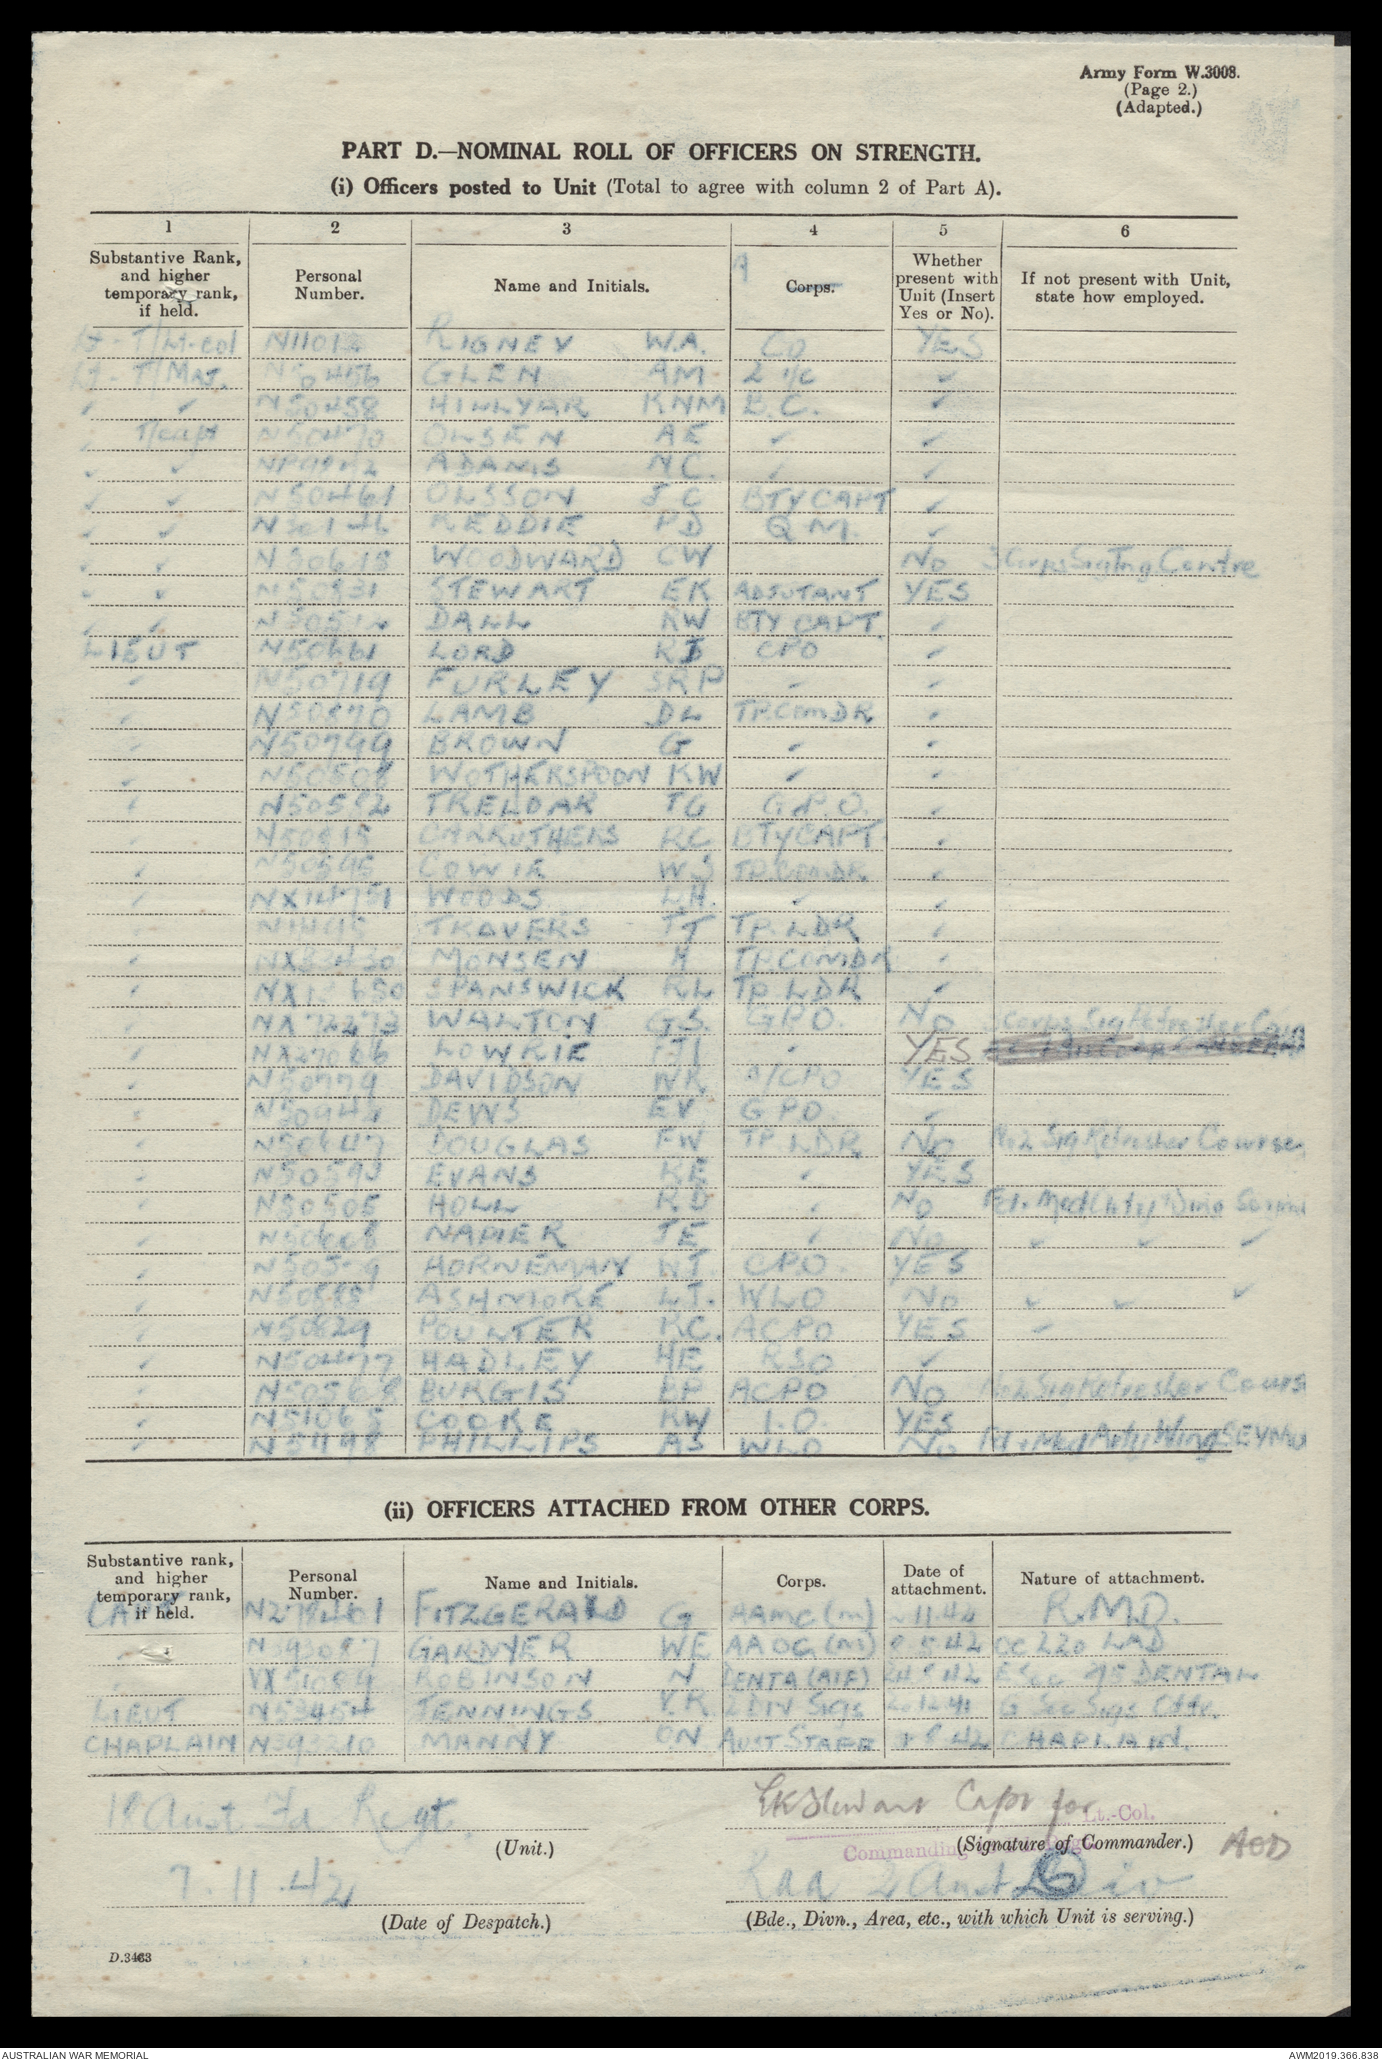 Army Form W.3008.
(Page 2.)
(Adapted.)
PART D.—NOMINAL ROLL OF OFFICERS ON STRENGTH.
(i) Officers posted to Unit (Total to agree with column 2 of Part A).
1 2 3 4 5 6
Substantive Rank, and higher temporary rank, if held. Personal Number. Name and Initials. Corps. Whether present with Unit (Insert Yes or No). If not present with Unit, state how employed.
Lt - T/Lt-col RIGNEY W.A. CO YES
Lt - T/MAJ. N50456 GLEN AM 2 i/c ✓
✓ ✓ N50458 HILLYAR KNM B.C. ✓
✓ T/capt N50470 OLSEN AE ✓ ✓
✓ ✓ ADAMS NC. ✓ ✓
✓ ✓ N50461 OLSSON J C BTY CAPT ✓
✓ ✓ KEDDIE PD Q M. ✓
✓ ✓ WOODWARD CW No 3 Corps Sig Tng Centre
✓ ✓ N50831 STEWART EK ADJUTANT YES
✓ ✓ DALL KW BTY CAPT. ✓
LIEUT N50661 LORD RJ CPO ✓
✓ N50719 FURLEY SRP ✓ ✓
✓ N50870 LAMB DL TP.ComDR ✓
✓ N50799 BROWN G ✓ ✓
✓ N50508 WOTHERSPOON KW ✓ ✓
✓ N50582 TRELOAR TG G.P.O. ✓
✓ N50815 CARRUTHERS RC BTY CAPT ✓
✓ N50595 COWIE WS TP.ComDR ✓
✓ NX14751 WOODS L.H. ✓ ✓
✓ TRAVERS TJ TP. LDR ✓
✓ NX83430 MONSEN H TP.COMDR ✓
✓ SPANSWICK RL TP LDR ✓
✓ NX72273 WALTON G.S. G.P.O. No Corps Sig Refresher Cour
✓ NX27066 LOWRIE ✓ YES
✓ N50779 DAVIDSON WR A/CPO YES
✓ DEWS EV G P.O. ✓
✓ N50647 DOUGLAS FW TP LDR No No 2 Sig Refresher Course
✓ EVANS KE ✓ YES
✓ N50505 HOLL RD ✓ No Fd. & Med Arty Wing Seymo
✓ N50608 NAPIER JE ✓ No ✓ ✓ ✓
✓ HORNEMAN WJ. CPO. YES
✓ N50888 ASHMORE LJ. WLO No ✓ ✓ ✓
✓ N50629 POUNTER RC. ACPO YES ✓
✓ N50477 HADLEY HE RSO ✓
✓ N50568 BURGIS EP ACPO No No 2 Sig Refresher Cours
✓ N51065 COOKE KW I.O. YES
✓ PHILLIPS AS WLO No Fd & Med Arty Wing SEYMO
(ii) OFFICERS ATTACHED FROM OTHER CORPS.
Substantive rank, and higher temporary rank, if held. Personal Number. Name and Initials. Corps. Date of attachment. Nature of attachment.
CAPT N278401 FITZGERALD G AAMC (m) R.M.O.
✓ N393087 GARNYER WE AAOC (m) 8.5.42 OC 220 LAD
✓ VX51089 ROBINSON N DENTA (AIF) 42 DENTAL
LIEUT N53454 JENNINGS V.R. 2 DIV Sigs G Sec Sigs Offr.
CHAPLAIN N393210 MANNY ON AUST STAFF 8.42 CHAPLAIN.
18 Aust. Fd Regt.
(Unit.)
EK Stewart Capt for Lt.-Col.
Commanding
(Signature of Commander.)
7.11.42
(Date of Despatch.)
Raa 2 Aust Div
(Bde., Divn., Area, etc., with which Unit is serving.)
D.3463
AUSTRALIAN WAR MEMORIAL
AWM2019.366.838